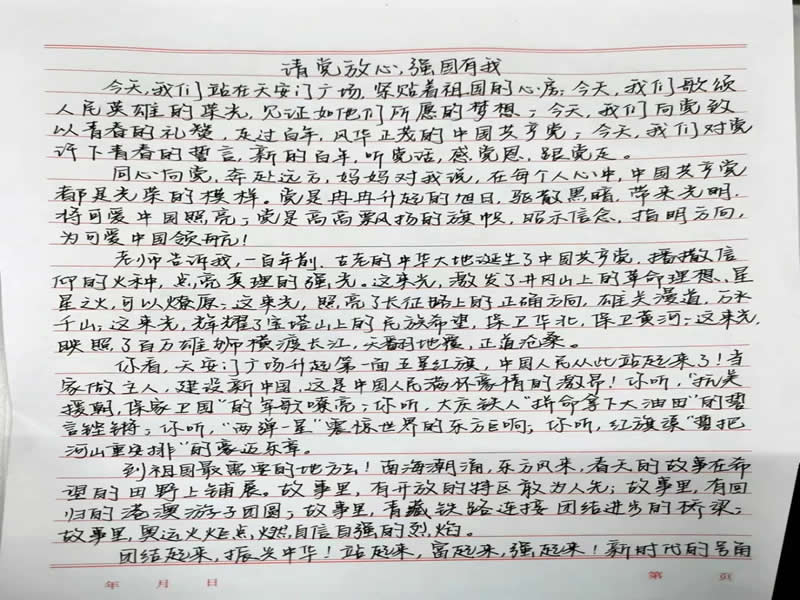 请党放心,强国有我
今天,我们站在天安门广场,紧贴着祖国的心房;今天,我们歌颂
人民英雄的荣光,见证如他们所愿的梦想;今天,我们向党致
以青春的礼赞,走过百年,风华正茂的中国共产党;今天,我们对党
许下青春的誓言,新的百年,听党话,感党恩,跟党走。
同心向党,奔赴远方,妈妈对我说,在每个人心中,中国共产党
都是光荣的模样。党是冉冉升起的旭日,驱散黑暗,带来光明,
将可爱中国照亮;党是高高飘扬的旗帜,昭示信念,指明方向,
为可爱中国领航!
老师告诉我,一百年前,古老的中华大地诞生了中国共产党,播撒信
仰的火种,点亮真理的强光。这束光,激发了井冈山上的革命理想、星
星之火,可以燎原;这束光,照亮了长征路上的正确方向,雄关漫道,万水
千山;这束光,辉耀了宝塔山上的民族希望,保卫华北,保卫黄河;这束光,
映照了百万雄师横渡长江,天翻地覆,正道沧桑。
你看,天安门广场升起第一面五星红旗,中国人民从此站起来了!当
家做主人,建设新中国,这是中国人民满怀豪情的激昂!你听,"抗美
援朝,保家卫国"的军歌嘹亮;你听,大庆铁人"拼命拿下大油田"的誓
言铿锵;你听,"两弹一星"震惊世界的东方巨响;你听,红旗渠"誓把
河山重安排"的豪迈乐章。
到祖国最需要的地方去!南海潮涌,东方风来,春天的故事在希
望的田野上铺展。故事里,有开放的特区敢为人先;故事里,有回
归的港澳游子团圆;故事里,青藏铁路连接团结进步的桥梁;
故事里,奥运火炬点燃自信自强的烈焰。
团结起来,振兴中华!站起来,富起来,强起来!新时代的号角
年 月 日 第 页